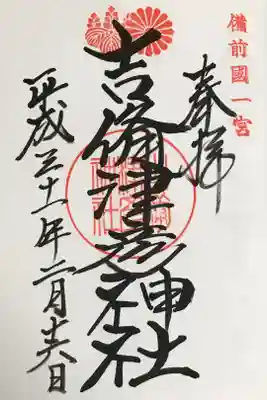 備前國一宮
奉拝
吉備津彦神社
平成三十一年二月十六日